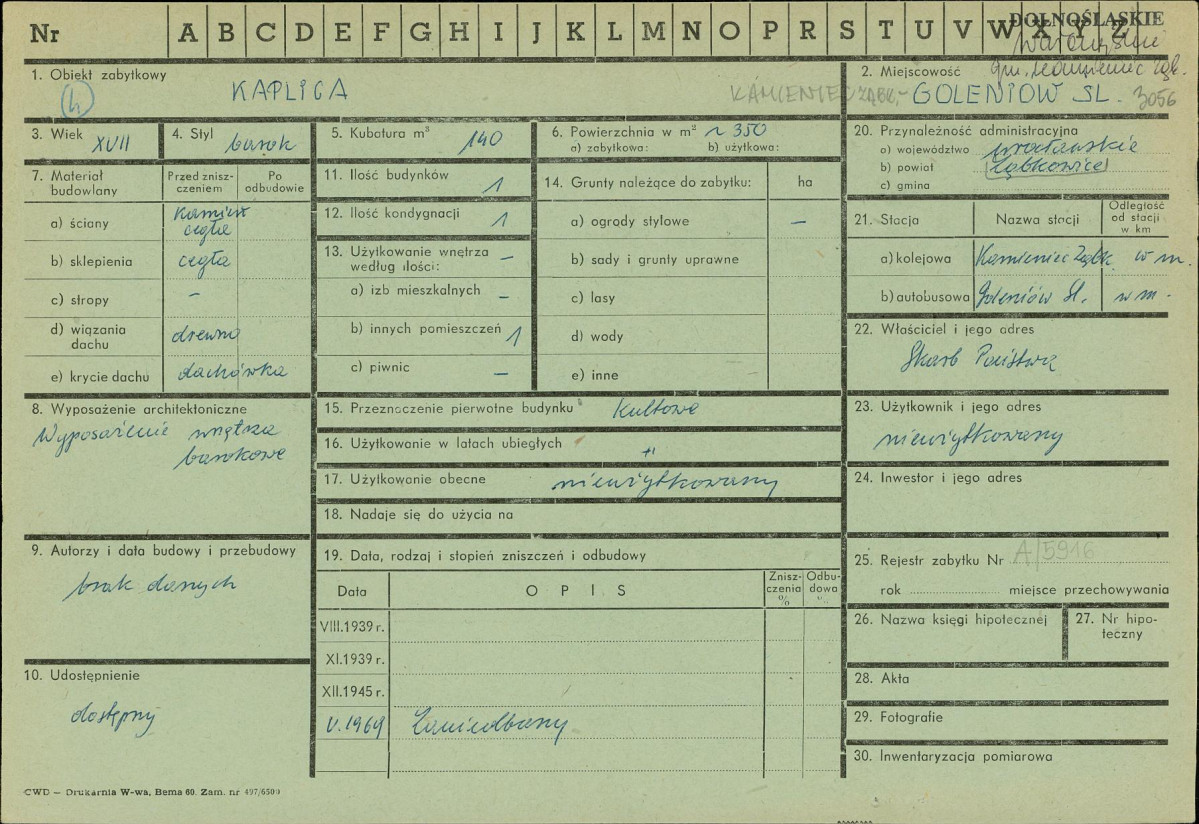 Nr A B C D E F G H I J K L M N O P R S T U V W X Y Z
DOLNOŚLĄSKIE
gm. Kamieniec Ząb.
1. Obiekt zabytkowy
KAPLICA
2. Miejscowość
KAMIENIEC ZĄBK.- GOLENIÓW ŚL. 3056
3. Wiek XVII
4. Styl barok
5. Kubatura m³ 140
6. Powierzchnia w m² ~ 350
a) zabytkowa: b) użytkowa:
7. Materiał budowlany
Przed znisz-
czeniem
Po
odbudowie
a) ściany kamień
cegła
b) sklepienia cegła
c) stropy –
d) wiązania
dachu drewno
e) krycie dachu dachówka
8. Wyposażenie architektoniczne
Wyposażenie wnętrza
barokowe
9. Autorzy i data budowy i przebudowy
brak danych
10. Udostępnienie
dostępny
11. Ilość budynków 1
12. Ilość kondygnacji 1
13. Użytkowanie wnętrza
według ilości: –
a) izb mieszkalnych –
b) innych pomieszczeń 1
c) piwnic –
14. Grunty należące do zabytku: ha
a) ogrody stylowe –
b) sady i grunty uprawne
c) lasy
d) wody
e) inne
15. Przeznaczenie pierwotne budynku kultowe
16. Użytkowanie w latach ubiegłych -"-
17. Użytkowanie obecne nieużytkowany
18. Nadaje się do użycia na
19. Data, rodzaj i stopień zniszczeń i odbudowy
Data OPIS
Znisz-
czenia
%
Odbu-
dowa
%
VIII.1939 r.
XI.1939 r.
XII.1945 r.
V.1969 Zaniedbany
20. Przynależność administracyjna
a) województwo wrocławskie
b) powiat Ząbkowice
c) gmina
21. Stacja Nazwa stacji
Odległość
od stacji
w km
a) kolejowa Kamieniec Ząbk. w m.
b) autobusowa Goleniów Śl. w m.
22. Właściciel i jego adres
Skarb Państwa
23. Użytkownik i jego adres
nieużytkowany
24. Inwestor i jego adres
25. Rejestr zabytku Nr A/5916
rok miejsce przechowywania
26. Nazwa księgi hipotecznej
27. Nr hipo-
teczny
28. Akta
29. Fotografie
30. Inwentaryzacja pomiarowa
CWD — Drukarnia W-wa, Bema 60. Zam. nr 497/6500